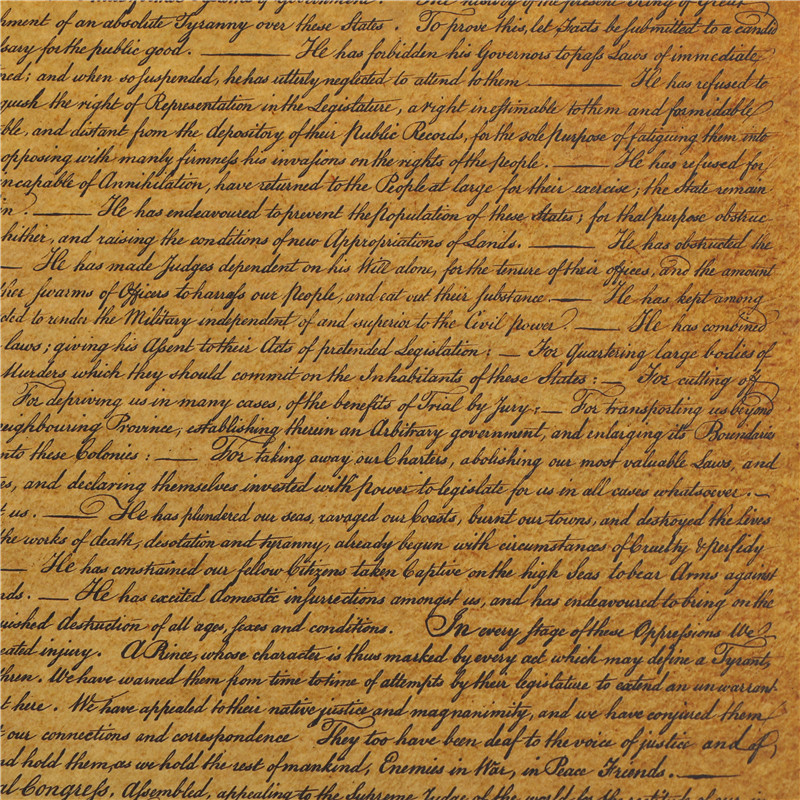 The history of the present King of Great
hment of an absolute Tyranny over these States To prove this, let Facts be submitted to a candid
sary for the public good. — He has forbidden his Governors to pass Laws of immediate
red; and when so suspended, he has utterly neglected to attend to them — He has refused to
quish the right of Representation in the Legislature, a right inestimable to them and formidable
ble, and distant from the depository of their Public Records, for the sole purpose of fatiguing them into
opposing with manly firmness his invasions on the rights of the people. — He has refused for
ncapable of Annihilation, have returned to the People at large for their exercise; the State remain
n. — He has endeavoured to prevent the Population of these States; for that purpose obstruc
hither, and raising the conditions of new Appropriations of Lands. — He has obstructed the
— He has made Judges dependent on his Will alone, for the tenure of their offices, and the amount
her swarms of Officers to harrass our People, and eat out their substance. — He has kept among
cted to render the Military independent of and superior to the Civil power. — He has combined
laws; giving his Assent to their Acts of pretended Legislation: — For Quartering large bodies of
Murders which they should commit on the Inhabitants of these States: — For cutting off
For depriving us in many cases, of the benefits of Trial by Jury: — For transporting us beyond
eighbouring Province, establishing therein an Arbitrary government, and enlarging its Boundaries
nto these Colonies: — For taking away our Charters, abolishing our most valuable Laws, and
es, and declaring themselves invested with power to legislate for us in all cases whatsoever. —
t us. — He has plundered our seas, ravaged our Coasts, burnt our towns, and destroyed the lives
he works of death, desolation and tyranny, already begun with circumstances of Cruelty & perfidy
— He has constrained our fellow Citizens taken Captive on the high Seas to bear Arms against
ds. — He has excited domestic insurrections amongst us, and has endeavoured to bring on the
uished destruction of all ages, sexes and conditions. In every stage of these Oppressions We
eated injury. A Prince, whose character is thus marked by every act which may define a Tyrant,
hren. We have warned them from time to time of attempts by their legislature to extend an unwarrant
t here. We have appealed to their native justice and magnanimity, and we have conjured them
t our connections and correspondence They too have been deaf to the voice of justice and of
nd hold them, as we hold the rest of mankind, Enemies in War, in Peace Friends. —
al Congress, Assembled, appealing to the Supreme Judge of the world for the